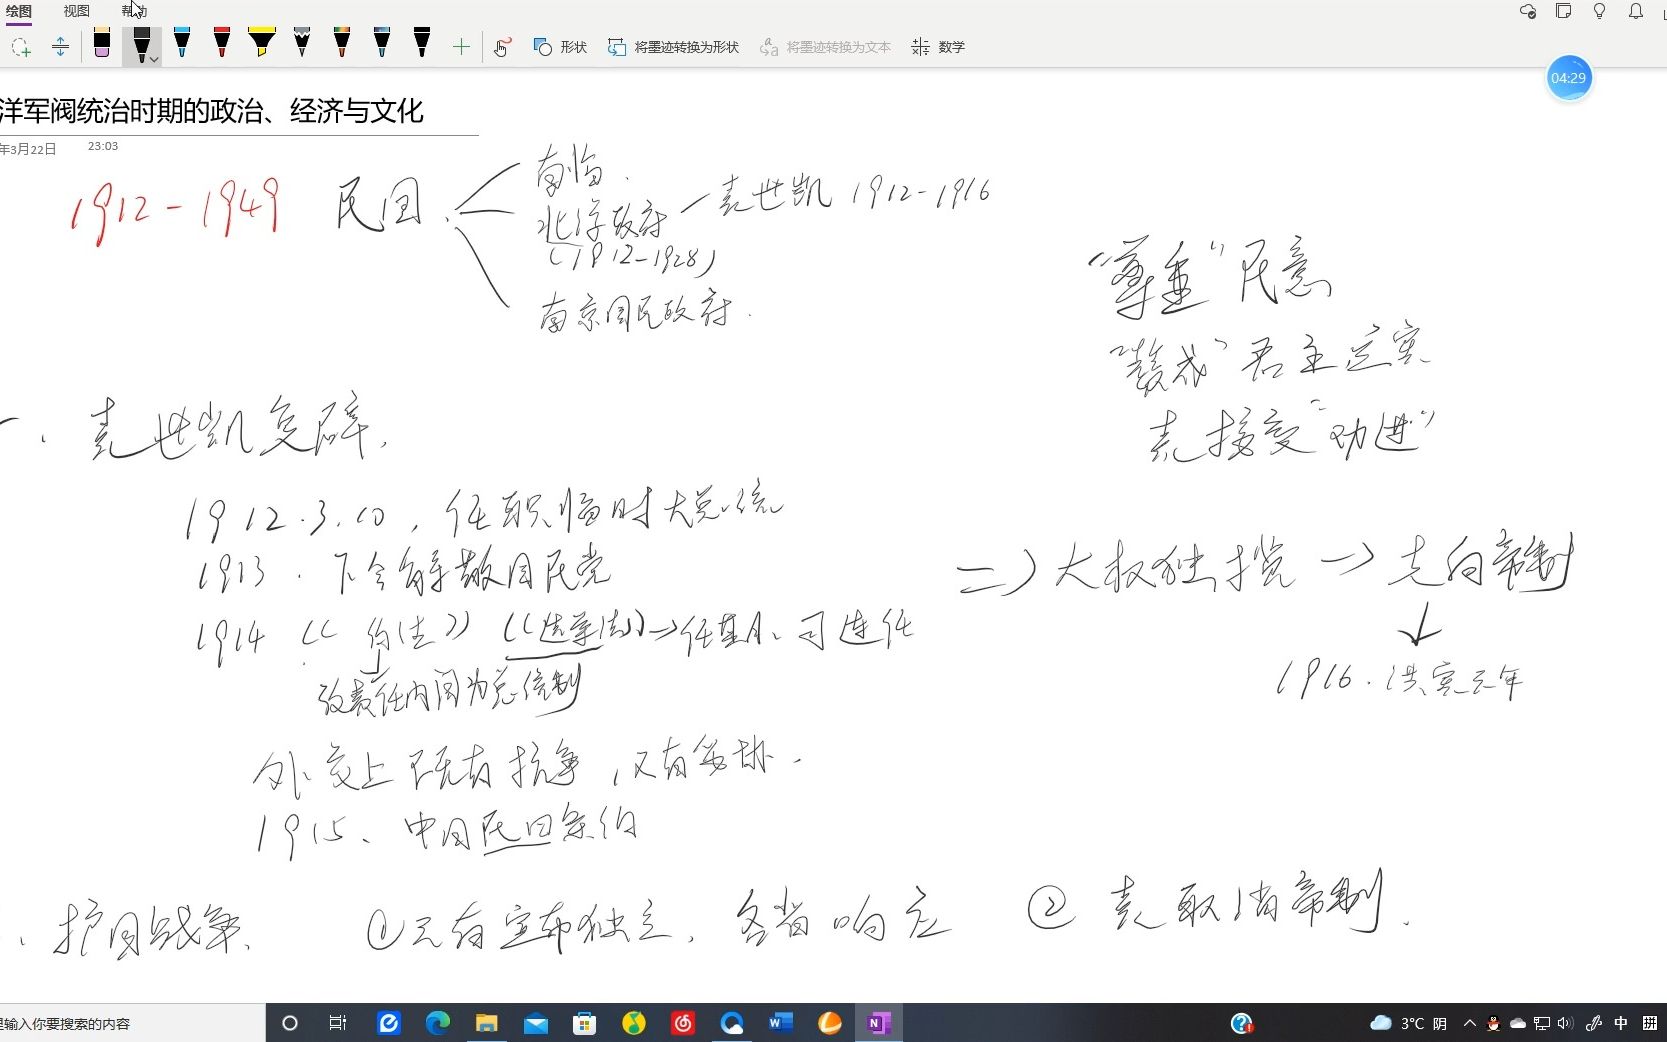 绘图 视图 帮助
形状 将墨迹转换为形状 将墨迹转换为文本 数学
04:29
洋军阀统治时期的政治、经济与文化
年3月22日 23:03
1912-1949 民国
南临.
北洋政府 — 袁世凯 1912-1916
(1912-1928)
南京国民政府.
"尊重"民意
"赞成"君主立宪
袁接受"劝进"
一、袁世凯复辟.
1912.3.10, 任职临时大总统
1913. 下令解散国民党
1914 《约法》《选举法》→任期、可连任
改责任内阁为总统制
⇒大权独揽 → 走向帝制
↓
1916. 洪宪元年
外交上既有抗争,又有妥协.
1915、中国民四条约
、护国战争. ①云南宣布独立, 各省响应 ②袁取消帝制.
里输入你要搜索的内容
3°C 阴
中 拼